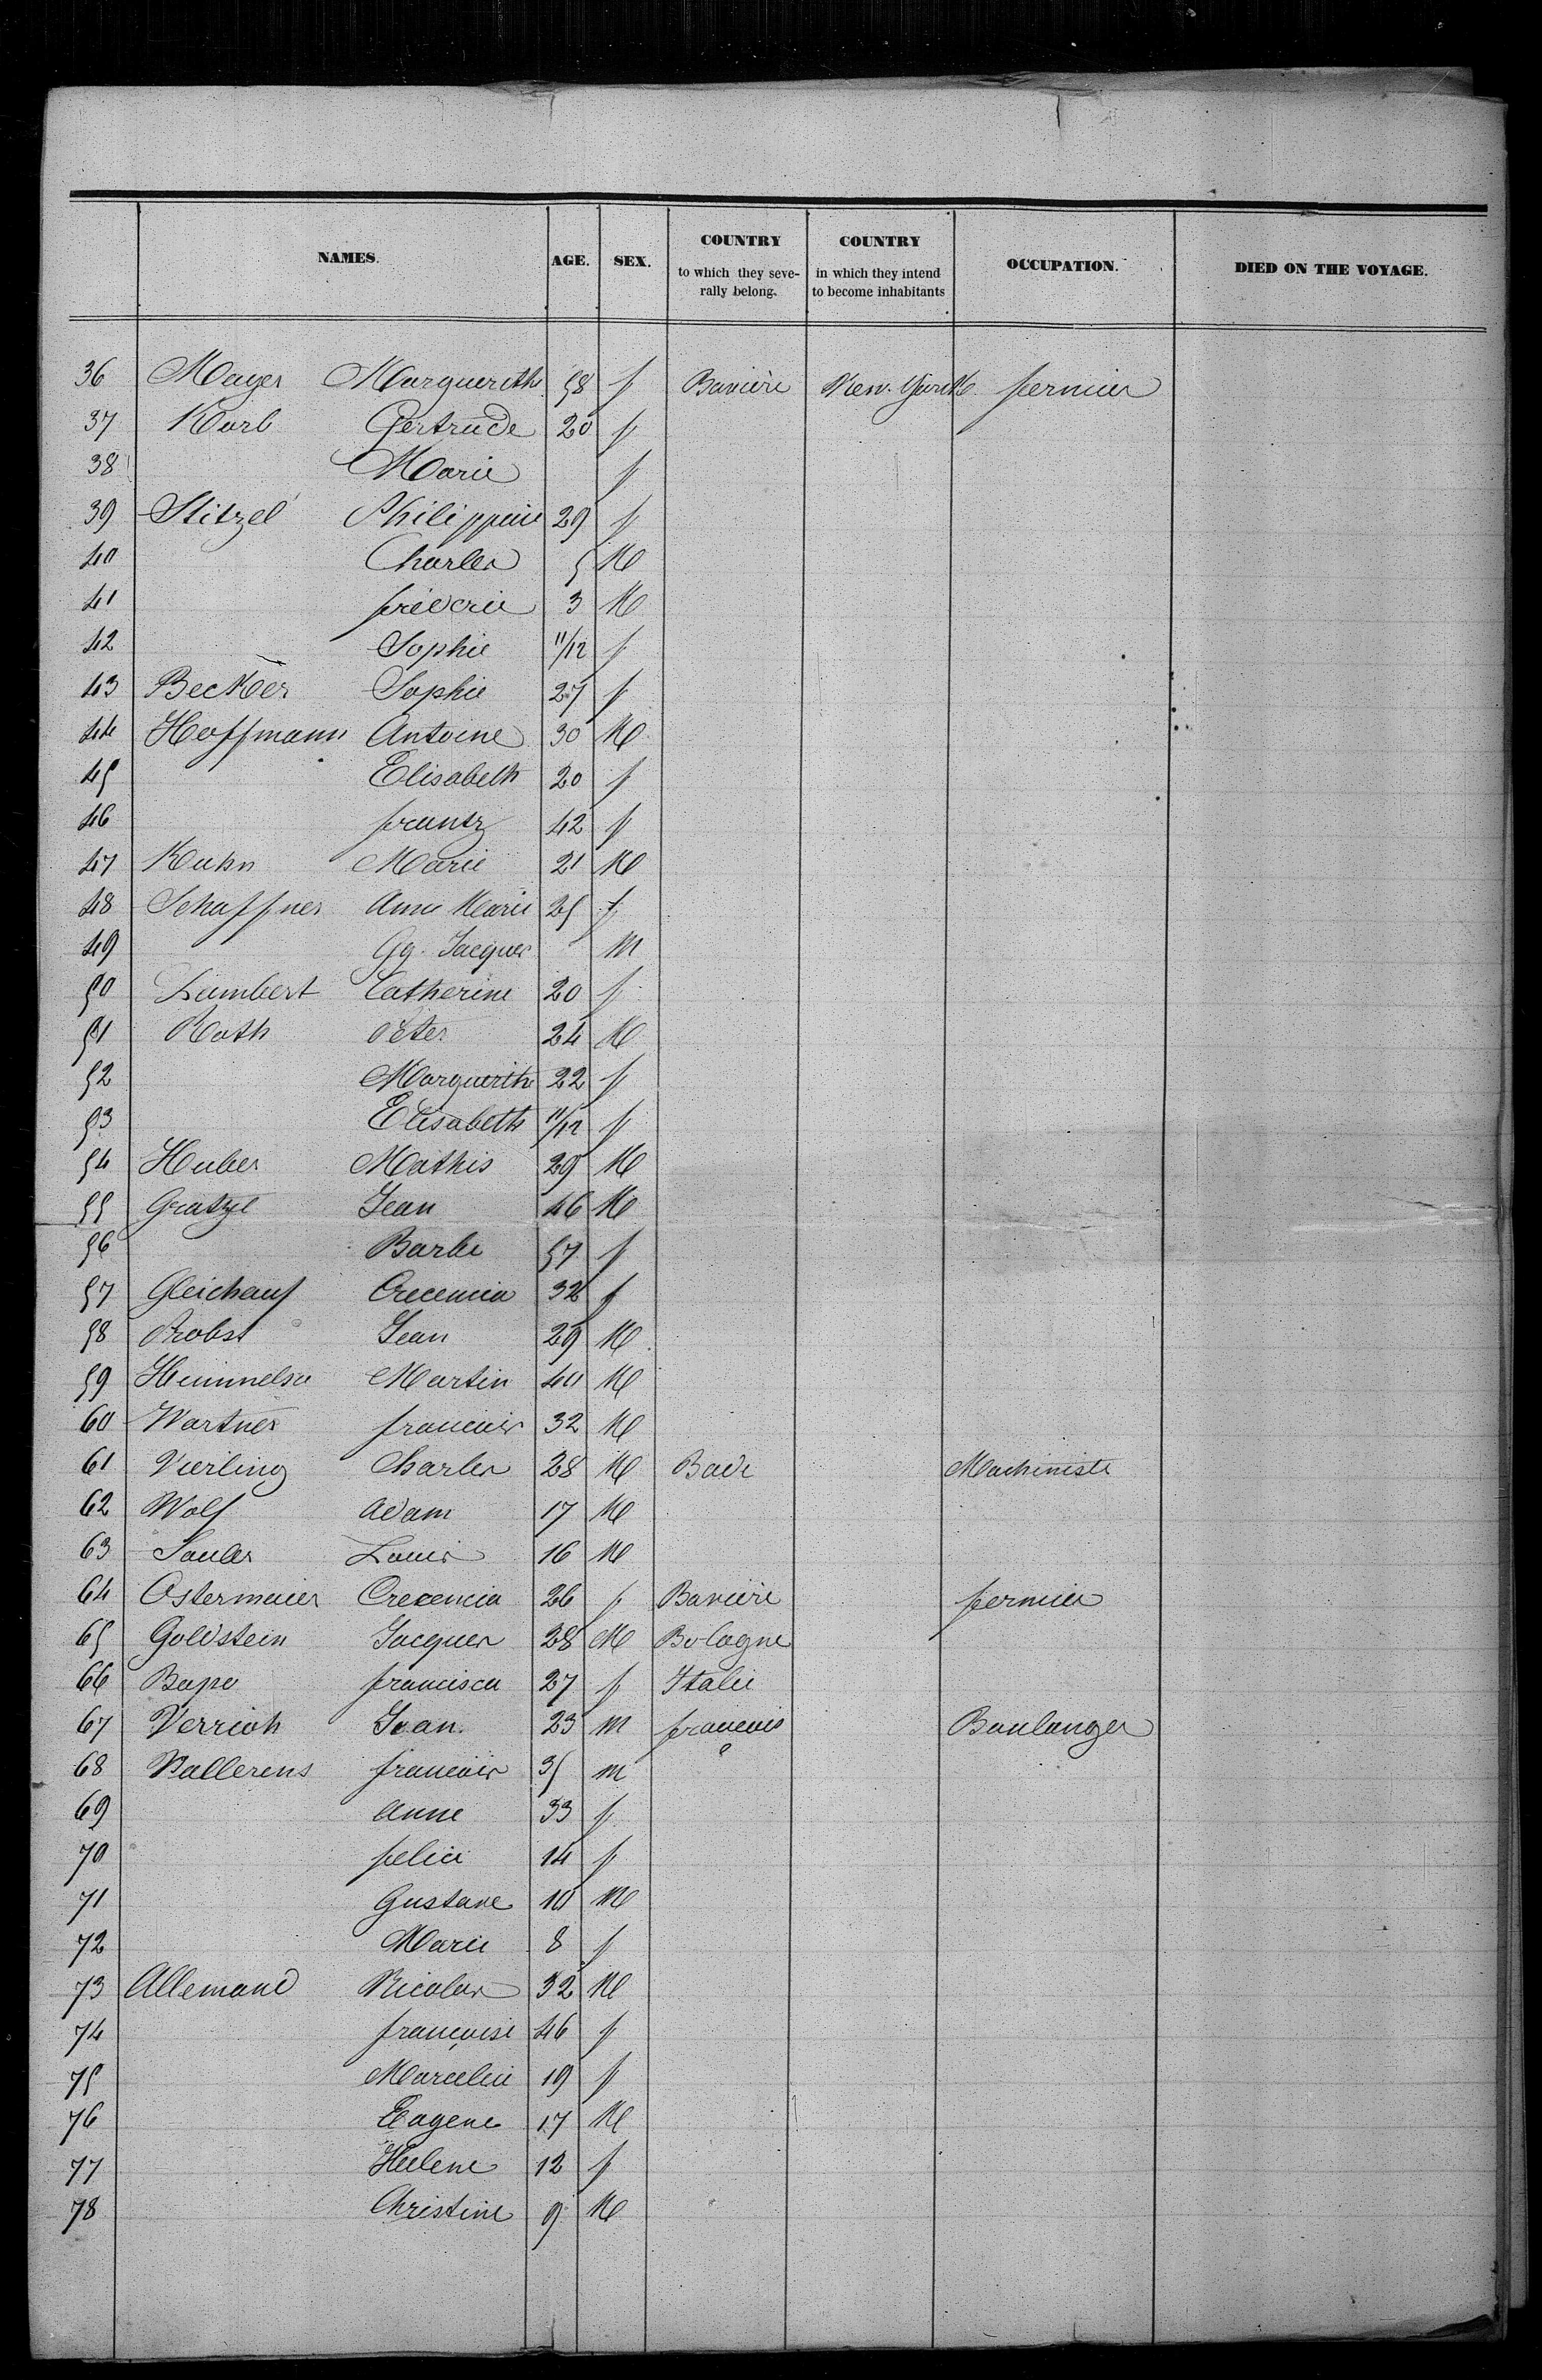 NAMES. AGE. SEX. COUNTRY to which they seve-rally belong. COUNTRY in which they intend to become inhabitants OCCUPATION. DIED ON THE VOYAGE.
36 Mayer Marguerith 58 f Baviere New-York fermier
37 Karb Gertrude 20 f
38 Marie f
39 Stitzel Philippine 29 f
40 Charles 5 M
41 frederic 3 M
42 Sophie 11/12 f
43 Becker Sophie 27 f
44 Hoffmann Antoine 30 M
45 Elisabeth 20 f
46 frantz 42 f
47 Kuhn Marie 21 M
48 Schaffner Anne Marie 25 f
49 Gg. Jacques M
50 Lambert Catherine 20 f
51 Roth Peter 24 M
52 Marguerithe 22 f
53 Elisabeth 11/12 f
54 Huber Mathis 29 M
55 Gratzel Jean 46 M
56 Barbe 57 f
57 Gleichauf Crecencia 32 f
58 Probst Jean 29 M
59 Martin 40 M
60 Wartner francois 32 M
61 Vierling Charles 28 M Bade Machiniste
62 Wolf Adam 17 M
63 Sauler Louis 16 M
64 Ostermaier Crecencia 26 f Baviere fermier
65 Goldstein Jacques 28 M Bologne
66 Bapo francisca 27 f Italie
67 Verrioh Jean 23 m francais Boulanger
68 Vallerens francois 35 m
69 Anne 33 f
70 felici 14 f
71 Gustave 10 M
72 Marie 8 f
73 Allemand Nicolas 52 M
74 françoise 46 f
75 Marcelin 19 f
76 Eugene 17 M
77 Helene 12 f
78 Christine 9 M